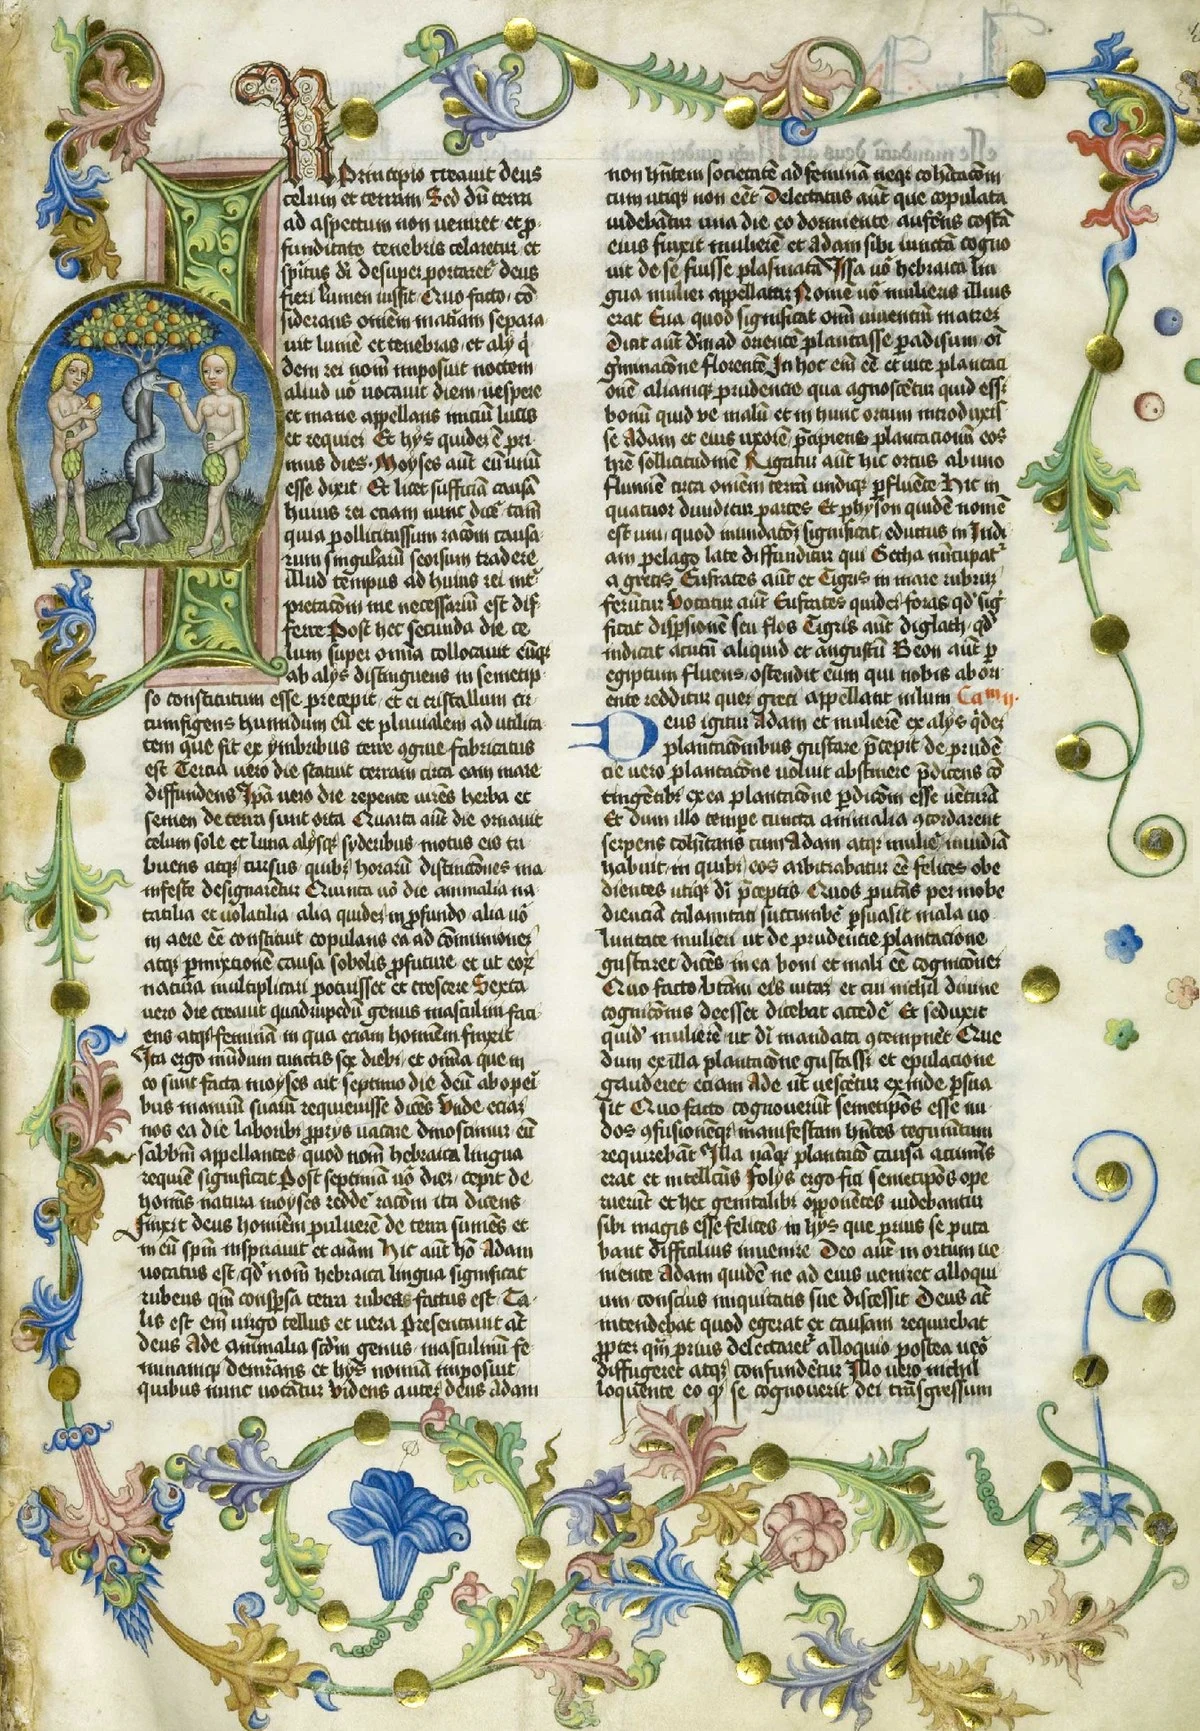 In Principio creavit deus
celum et terram Sed dū terra
ad aspectum non veniret et p̄
funditate tenebris celaretur et
sp̄ritus dī desuper portaretʳ deus
fieri lumen iussit Quo facto cō
siderans omēm mat̄iam separa
vit lumē et tenebras et alÿ q̄
dem rei nom̄ imposuit noctem
aliud vō vocavit diem vespere
et mane appellans iniciū lucis
et requiei Et hÿs quideꝫ ē pri
mus dies Moyses aūt eū unū
esse dixit Et licet sufficiā causā
huius rei eciam nunc dicē tam̄
quia pollicitus sum rac̄om causa
rum singularū seorsum tradere
illud tempus ad huius rei int̄
pretac̄om me necessariū est dif
ferre Post hec secunda die ce
lum super omnia collocavit eūqꝫ
ab alÿs distinguens in semetip
so constitutum esse precepit et ei cristallum cir
cumfigens humidum eū et pluvialem ad utilita
tem que fit ex ymbribus terre ꝯgrue fabricatus
est Tercia vero die statuit terram circa eam mare
diffundens Ip̄a vero die repente vires herba et
semen de terra sunt orta Quarta aūt die ornavit
celum sole et luna alÿsqꝫ syderibus motus eis tri
buens atqꝫ cursus quibꝫ horarū distinctōnes ma
nifeste designaretur Quinta vō die animalia na
tatilia et volatilia alia quideꝫ in ꝓfundo alia vō
in aere eē constituit copulans ea ad cōmunioneꝫ
atqꝫ ꝑmixtionē causa sobolis ꝓfuture et ut eoꝝ
natura multiplicari potuisset et crescere Sexta
vero die creavit quadrupedū genus masculim faci
ens atqꝫ feminā in qua eciam hominem finxit
Ita ergo mūdum cunctis sex diebꝫ et omīa que in
eo sunt facta moyses ait septimo die deū ab opeꝝ
bus manuū suaꝝ requievisse dicēs Unde eciaꝫ
nos ea die laboribꝫ ꝓprÿs vacare dinoscimur eū
sabbm̄ appellantes quod nom̄ hebraica lingua
requiē significat Post septimā vō dieꝫ cepit de
hom̄is natura moyses reddē rac̄om ita dicens
finxit deus homiēm pulverē de terra sumēs et
in eū sp̄m inspiravit et aīam Hic aūt hō Adam
vocatus est qd̄ nom̄ hebraica lingua significat
rubeus qm̄ consp̄sa terra rubea factus est Ta
lis est em̄ virgo tellus et vera Presentavit aūt
deus Ade animalia sc̄dm genus masculinū fe
minamqꝫ demr̄ans et hÿs nomīa imposuit
quibus nunc vocātur Videns auteꝫ deus Adam
non hn̄tem societatē ad feminā neqꝫ cohitac̄om
cum utiqꝫ non eēt Delectatus aūt que copulata
videbātur una die eo dormiente auferēs costā
eius finxit mulierē et Adam sibi iunctā cogno
vit de se fuisse plasmatā Issa vō hebraica lin
gua mulier appellatur Nomē vō mulieris illius
erat Eva quod significat omn̄ viventiū matreꝫ
Dicit aūt dm̄ ad oriente plantasse ꝑadisum oī
gʳminac̄one florentē In hoc em̄ eē et vite plantaci
onē aliamqꝫ prudencie qua agnoscetur quid essꝫ
bonū quid ve malū et in hunc ortum introduxis
se Adam et eius uxorē p̄cipiens plantacionū eos
hr̄e sollicitudinē Rigatur aūt hic ortus ab uno
flumīe circa omēm terrā undiqꝫ ꝑfluēte Hic in
quatuor dividitur partes Et physon quidem nomē
est uni quod inundac̄o significat eductus in Indi
am pelago late diffunditur qui Getha nūcupatʳ
a grecis Eufrates aūt et Tigris in mare rubruꝫ
ferūtur Vocatur aūt Eufrates quideꝫ foras qd̄ sig
ficat disp̄sionē seu flos Tigris aūt diglath qd̄
indicat acutū aliquid et angustū Geon aūt ꝑ
egiptum fluens ostendit eum qui nobis ab ori
ente redditur queꝫ greci appellant nilum Caᵐ ij.
Deus igitur Adam et mulierē ex alÿs q̄deꝫ
plantac̄onibus gustare p̄cepit de prudē
cie vero plantac̄one voluit abstinere p̄dicens cō
tingētibꝫ ex ea plantac̄one ꝑdic̄om esse ventura
Et dum illo tempe cuncta animalia ꝯcordarent
serpens cohitans cum Adam atqꝫ muliē invidiā
habuit in quibꝫ eos arbitrabatur eē felices obe
dientes utiqꝫ dī p̄ceptis Quos putās per inobe
dienciā calamitati succumbē ꝑsuasit mala vo
luntate mulieri ut de prudencie plantac̄one
gustaret dicēs in ea boni et mali eē cognic̄oneꝫ
Quo facto bt̄am eis vitaꝫ et cui nichil divine
cognic̄onis deesset dicebat accedē Et seduxit
quidꝫ mulierē ut dī mandata ꝯtempnēt Que
dum ex illa plantac̄one gustassꝫ et epulacione
gauderet eciam Ade ut vescetur exinde ꝑsua
sit Quo facto cognoverūt semetip̄os esse nu
dos ꝯfusionēqꝫ manifestam hn̄tes tegumtum
requirebāt Illa naqꝫ plantac̄o causa acumīs
erat et intellcūs Folÿs ergo fici semetip̄os ope
ruerūt et hec genitalibꝫ opponētes videbantur
sibi magis esse felices in hÿs que prius se puta
bant difficilius invenire Deo aūt in ortum ve
niente Adam quidē ne ad eius veniret alloqui
um conscius iniquitatis sue discessit Deus aūt
intendebat quod egerat et causam requirebat
ꝓpter qm̄ prius delectaretʳ alloquio postea verō
diffugeret atqꝫ confundētur Illo vero nichil
loquente eo qꝫ se cognoverit dei trāsgressum